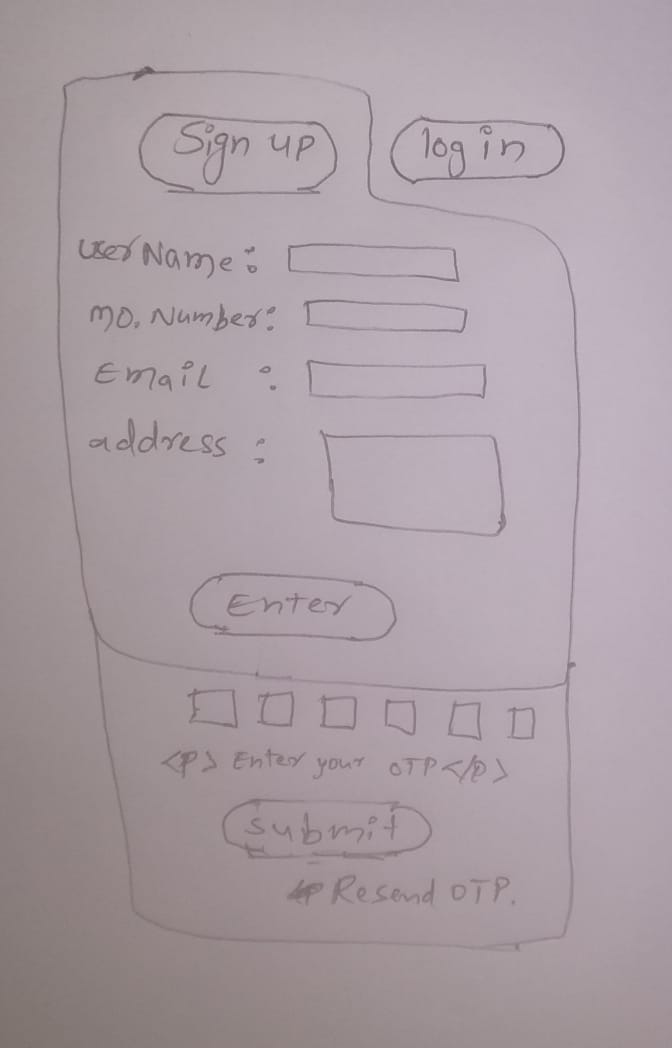 Sign up log in
userName:
mo. Number:
Email :
address :
Enter
<p> Enter your OTP </p>
submit
Resend OTP.